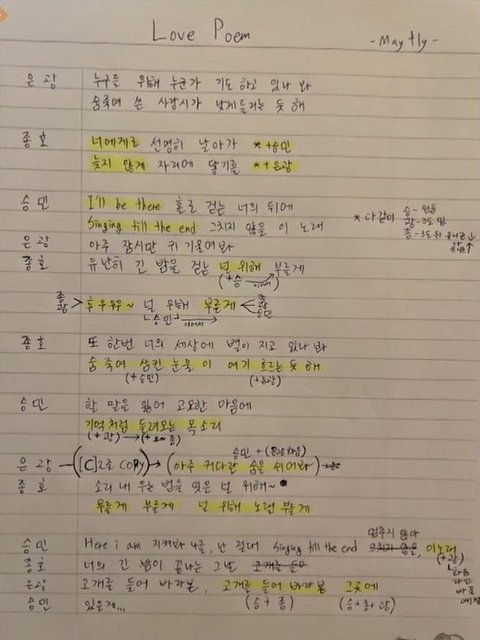 Love Poem
- Mayfly -
은광 누구를 위해 누군가 기도 하고 있나 봐
숨죽여 쓴 사랑시가 낮게 들리는 듯 해
종호 너에게로 선명히 날아가 * +승민
늦지 않게 자리에 닿기를 * +은광
승민 I'll be there 홀로 걷는 너의 뒤에
Singing till the end 그치지 않을 이 노래
* 다같이 승 - 원음
광 - 3도 밑
종 - 3도 위
은광 아주 잠시만 귀 기울여봐
종호 유난히 긴 밤을 걷는 널 위해 부를게
(+승) 이어서
종 광 > 후우우우~ 널 위해 부를게 < 종 광 승민
승민 이어서
종호 또 한번 너의 세상에 별이 지고 있나 봐
숨죽여 삼킨 눈물이 여기 흐르는 듯 해
(+승민) (+은광)
승민 할 말을 잃어 고요한 마음에
기억처럼 들려오는 목소리
(+광) → (+종)
은광 - ([C]2로 COPY) → (아주 커다란 숨을 쉬어봐)
승민 +
종호 소리 내 우는 법을 잊은 널 위해~
부를게 부를게 널 위해 노래 부를게
멈추지 않아
승민 Here i am 지켜봐 나를, 난 절대 Singing till the end 그치지 않을, 이 노래
(+광)
종호 너의 긴 밤이 끝나는 그날 고개를 들어
은광 고개를 들어 바라본, 고개를 들어 바라본 그곳에
(승+종) (승+종+광)
승민 있을게...